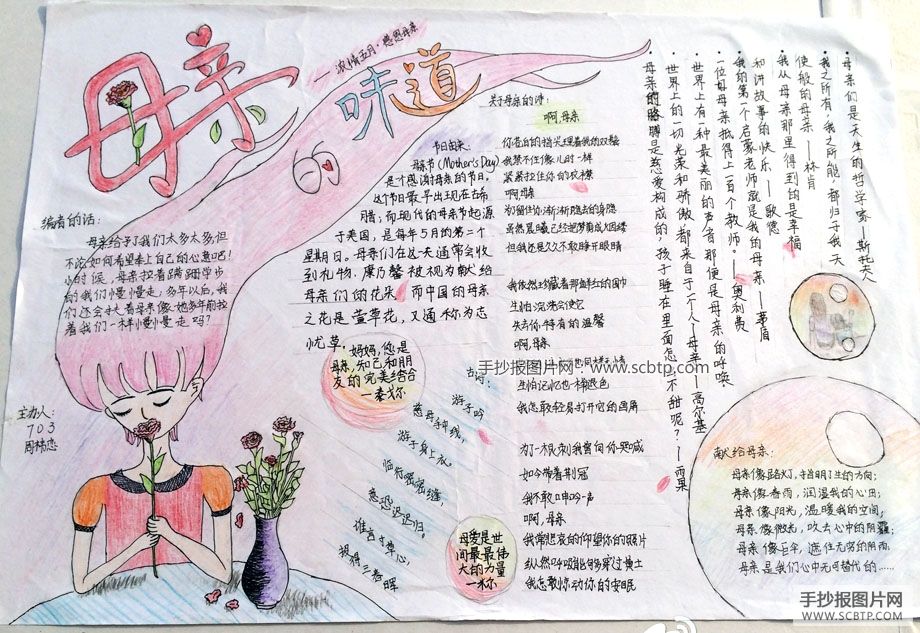 母亲
的
味道
—浓情五月·感恩母亲
编者的话:
母亲给予了我们太多太多,但
不论如何希望奉上自己的心意吧!
小时候,母亲拉着蹒跚学步
的我们慢慢走;多年以后,我
们还会扶着母亲像她多年前拉
着我们一样慢慢走吗?
主办人:
703
周林恋
节日由来:
母亲节(Mother's Day)
是个感谢母亲的节日。
这个节日最早出现在古希
腊;而现代的母亲节起源
于美国,是每年5月的第二个
星期日。母亲们在这一天通常会收
到礼物,康乃馨被视为献给
母亲们的花朵,而中国的母亲
之花是萱草花,又通称为忘
忧草。
妈妈,您是
母亲,知己和朋
友的完美结合
—泰戈尔
古诗:
游子吟
慈母手中线,
游子身上衣。
临行密密缝,
意恐迟迟归。
谁言寸草心,
报得三春晖
母爱是世
间最最伟
大的力量
—米尔
关于母亲的诗:
啊,母亲
你苍白的指尖理着我的双鬓
我禁不住像儿时一样
紧紧拉住你的衣襟
啊,母亲
为留住你渐渐隐去的身影
虽然晨曦已经把梦剪成烟缕
但我还是久久不敢睁开眼睛
我依然珍藏着那血红的围巾
生怕浣洗会使它
失去你特有的温馨
啊,母亲
生怕记忆也一样褪色
我怎敢轻易打开它的画屏
为了一根刺我曾向你哭喊
如今带着荆冠
我不敢呻吟一声
啊,母亲
我常悲哀的仰望你的照片
纵然呼吸能够穿过黄土
我怎敢惊动你的安眠
·母亲们是天生的哲学家—斯托夫人
·我之所有,我之所能,都归于我天
使般的母亲—林肯
我从母亲那里得到的是幸福
和讲故事的快乐—歌德
·我的第一个启蒙老师就是我的母亲—茅盾
·一位好母亲抵得上一百个教师—奥利费
·世界上有一种最美丽的声音那便是母亲的呼唤
·世界上的一切光荣和骄傲都来自于一个人—母亲—高尔基
·母亲的胳膊是慈爱构成的,孩子睡在里面怎能不甜呢?—雨果
献给母亲:
母亲像路灯,指明了生的方向;
母亲像春雨,润湿我的心田;
母亲像阳光,温暖我的空间;
母亲像微光,吹去心中的阴霾;
母亲像巨伞,遮住无穷的阴雨
母亲是我们心中无可替代的……
手抄报图片网 - www.scbtp.com
手抄报图片网
WWW.SCBTP.COM